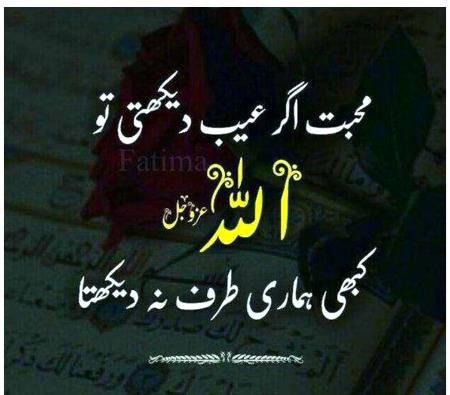 محبت اگر عیب دیکھتی تو
Fatima
اللہ عزوجل
کبھی ہماری طرف نہ دیکھتا